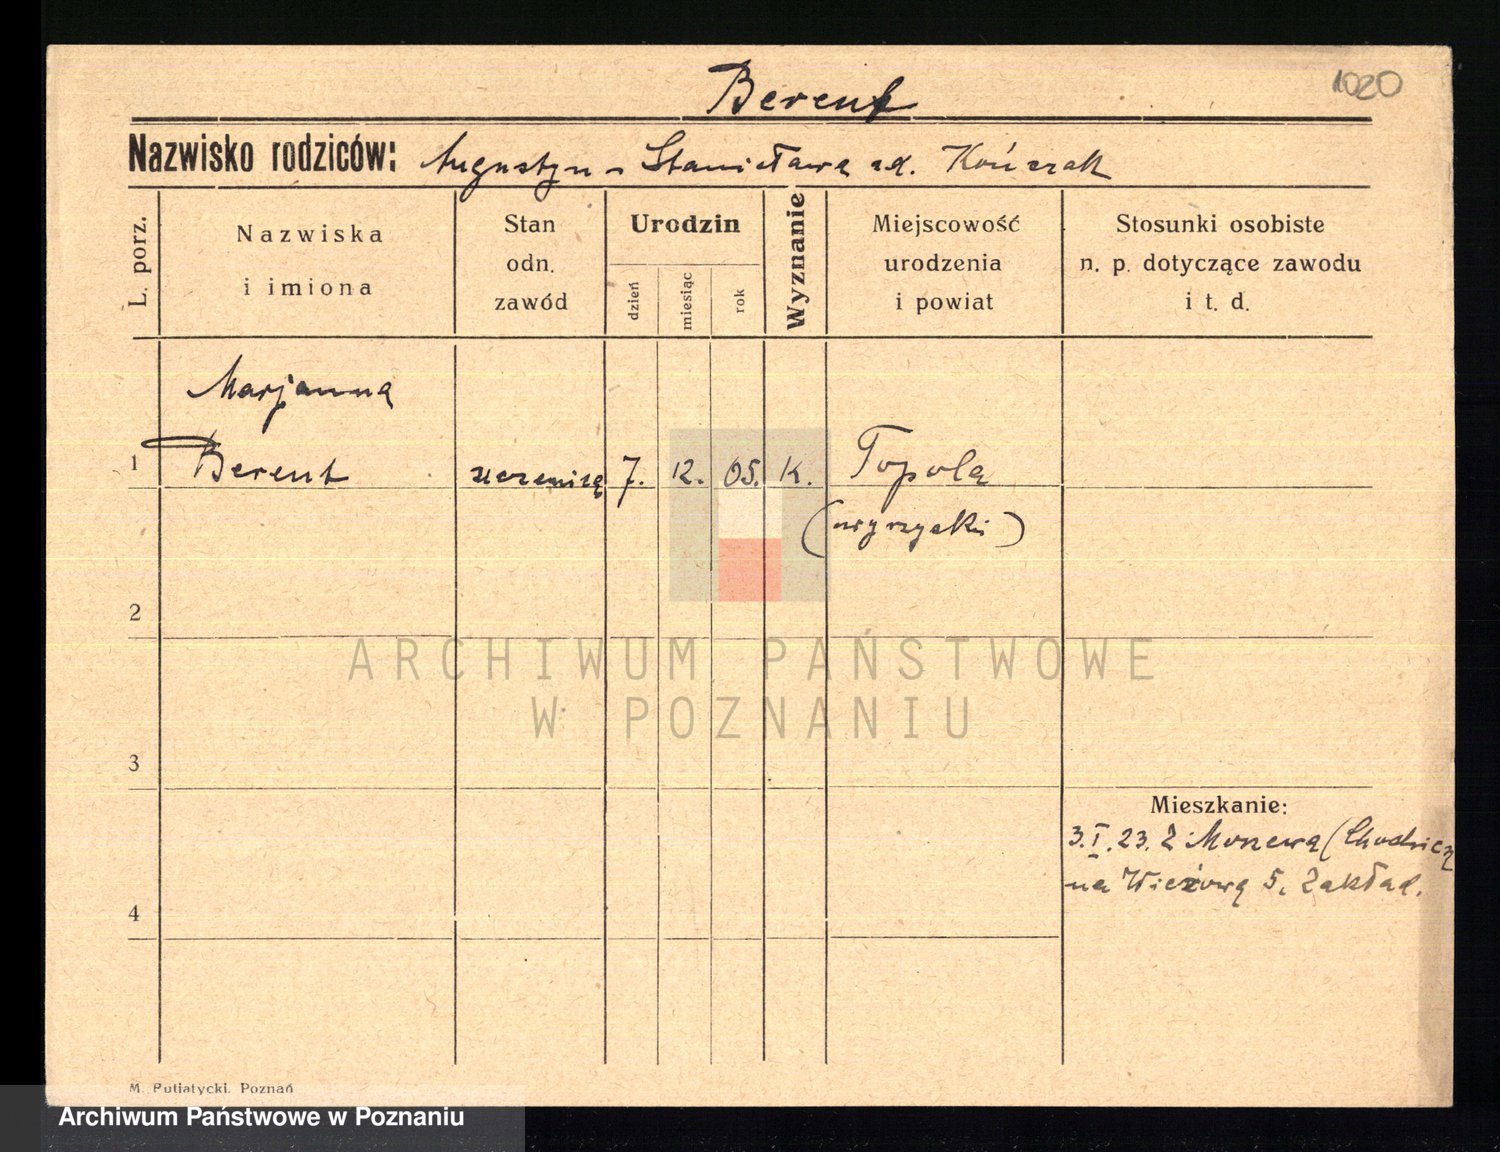 1020
Berent
Nazwisko rodziców: Augustyn - Stanisława zd. Kończak
L. porz.
Nazwiska
i imiona
Stan
odn.
zawód
Urodzin
dzień
miesiąc
rok
Wyznanie
Miejscowość
urodzenia
i powiat
Stosunki osobiste
n. p. dotyczące zawodu
i t. d.
Marjanna
1 Berent uczenica 7. 12. 05. K. Topola
(wyrzyski)
2
3
4
Mieszkanie:
3. I. 23. Z (Chodzież
na Wieżową 5, Zakład.
ARCHIWUM PAŃSTWOWE
W POZNANIU
M. Putiatycki. Poznań
Archiwum Państwowe w Poznaniu